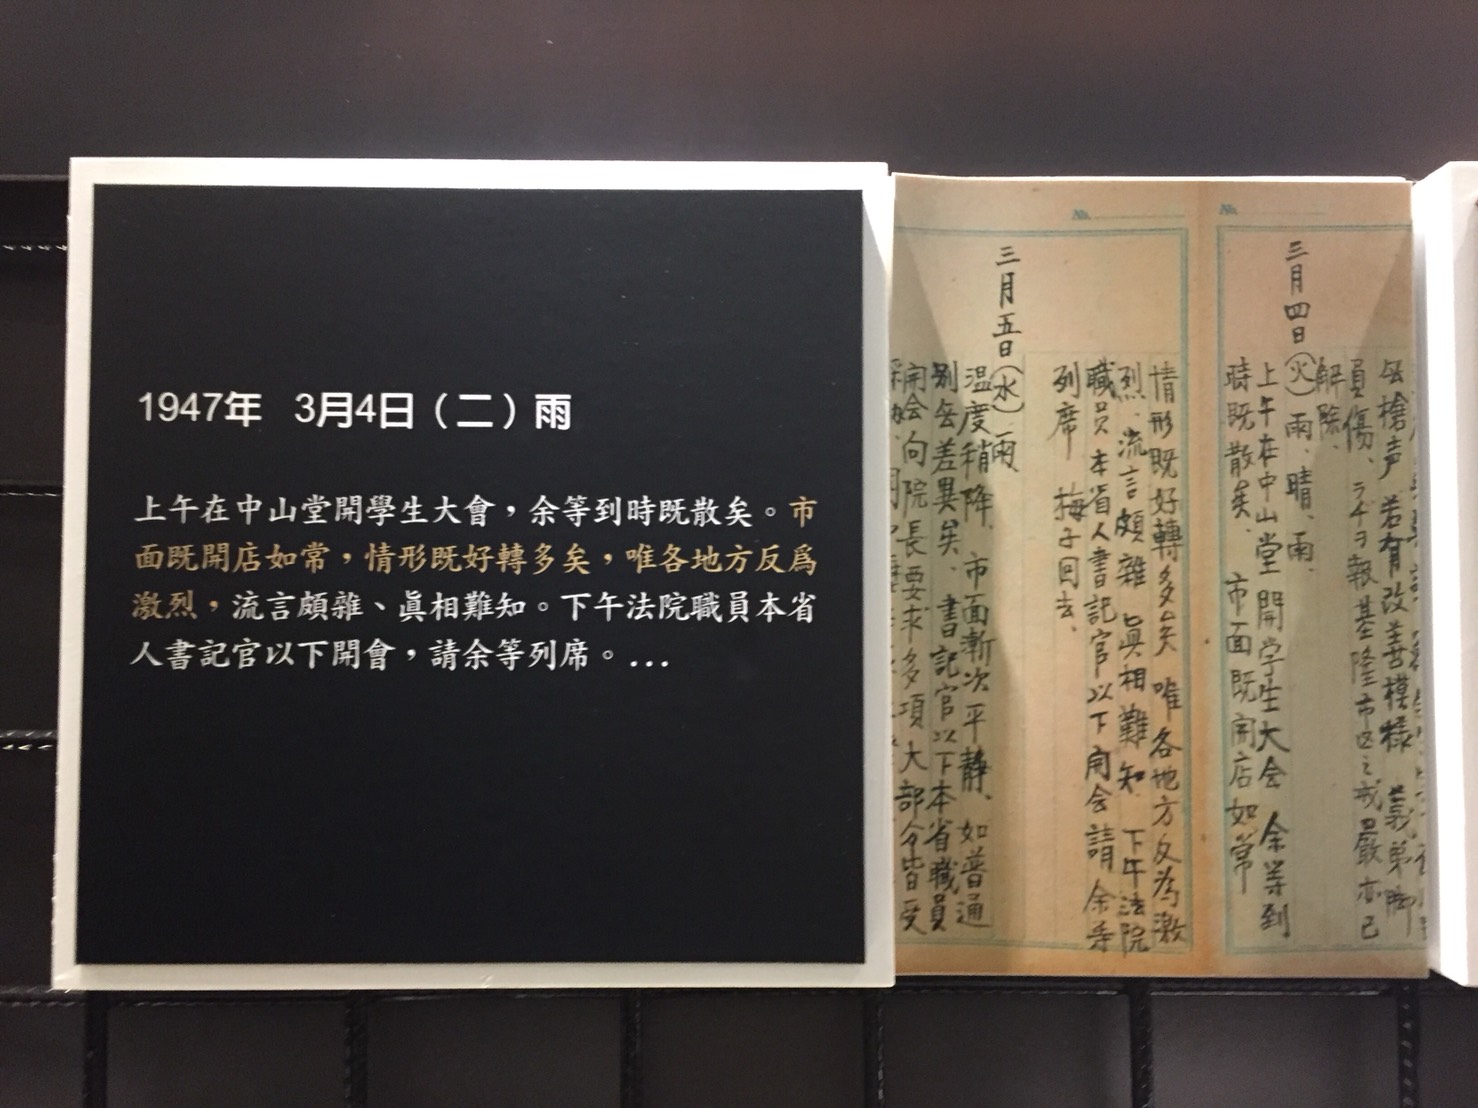 1947年 3月4日（二）雨
上午在中山堂開學生大會，余等到時既散矣。市
面既開店如常，情形既好轉多矣，唯各地方反爲
激烈，流言頗雜、眞相難知。下午法院職員本省
人書記官以下開會，請余等列席。...
No.
No.
無槍声 若有改善模様 義弟脚
負傷、ラヂヲ報基隆市區之戒嚴亦已
解除、
三月四日(火)雨、晴、雨、
上午在中山堂開学生大会 余等到
時既散矣、市面既開店如常
情形既好轉多矣 唯各地方反為激
烈、流言頗雜 眞相難知 下午法院
職員本省人書記官以下開会請余等
列席 梅子回去、
三月五日(水)雨、
温度稍降、市面漸次平靜、如普通
別無差異矣、書記官以下本省職員
開会向院長要求多項大部分皆受